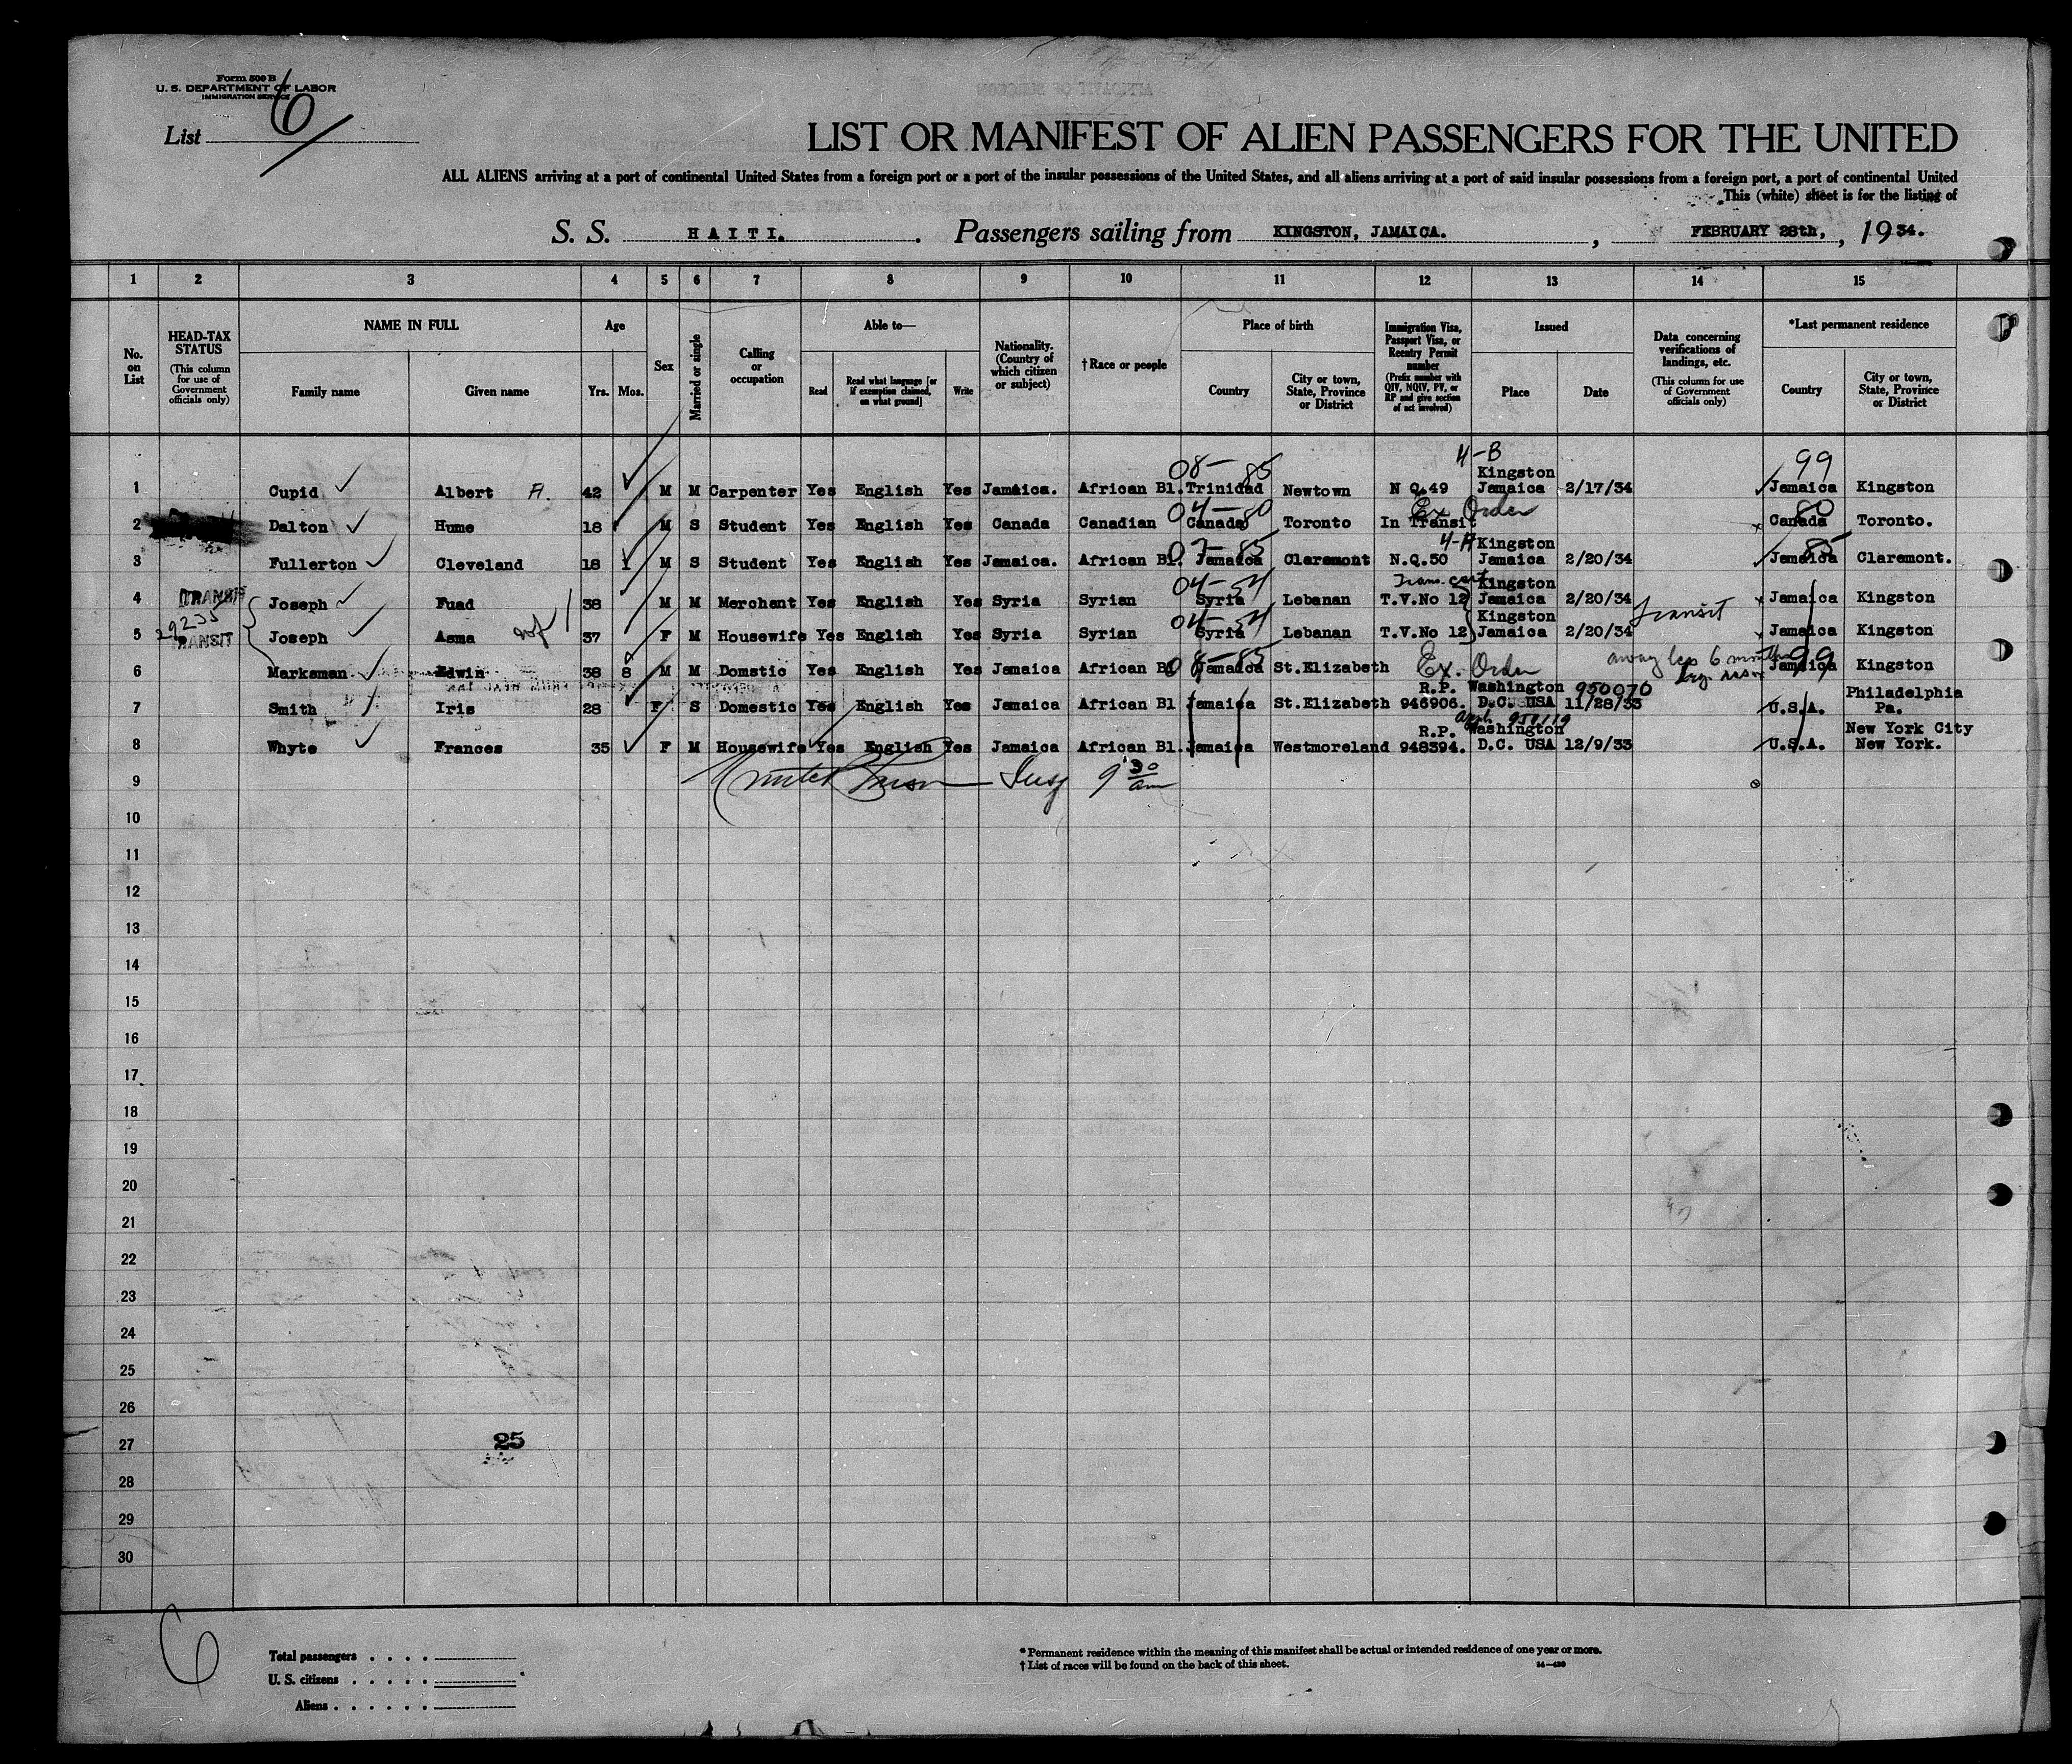 Form 500 B
U. S. DEPARTMENT OF LABOR
IMMIGRATION SERVICE
List 6
LIST OR MANIFEST OF ALIEN PASSENGERS FOR THE UNITED
ALL ALIENS arriving at a port of continental United States from a foreign port or a port of the insular possessions of the United States, and all aliens arriving at a port of said insular possessions from a foreign port, a port of continental United
This (white) sheet is for the listing of
S. S. HAITI. Passengers sailing from KINGSTON, JAMAICA. , FEBRUARY 28th, , 1934.
1 2 3 4 5 6 7 8 9 10 11 12 13 14 15
No. on List
HEAD-TAX STATUS (This column for use of Government officials only)
NAME IN FULL
Family name Given name
Age
Yrs. Mos.
Sex
Married or single
Calling or occupation
Able to—
Read Read what language [or if exemption claimed, on what ground] Write
Nationality. (Country of which citizen or subject)
†Race or people
Place of birth
Country City or town, State, Province or District
Immigration Visa, Passport Visa, or Reentry Permit number (Prefix number with QIV, NQIV, PV, or RP and give section of act involved)
Issued
Place Date
Data concerning verifications of landings, etc. (This column for use of Government officials only)
*Last permanent residence
Country City or town, State, Province or District
08— 85 4-B 99
1 Cupid Albert A. 42 M M Carpenter Yes English Yes Jamaica. African Bl. Trinidad Newtown N Q.49 Kingston Jamaica 2/17/34 Jamaica Kingston
04—80 Ex. Order 80
2 Dalton Hume 18 M S Student Yes English Yes Canada Canadian Canada Toronto In Transit Canada Toronto.
07—85 4-A 85
3 Fullerton Cleveland 18 1 M S Student Yes English Yes Jamaica. African Bl. Jamaica Claremont N.Q.50 Kingston Jamaica 2/20/34 Jamaica Claremont.
04—54 Trans. cert
4 TRANSIT Joseph Fuad 38 M M Merchant Yes English Yes Syria Syrian Syria Lebanan T.V.No 12 Kingston Jamaica 2/20/34 Jamaica Kingston
29235 04—54 Transit
5 TRANSIT Joseph Asma 37 F M Housewife Yes English Yes Syria Syrian Syria Lebanan T.V.No 12 Kingston Jamaica 2/20/34 Jamaica Kingston
08—85 away les 6 months 99
6 Marksman Edwin 38 8 M M Domstic Yes English Yes Jamaica African Bl Jamaica St.Elizabeth Ex. Order Jamaica Kingston
7 Smith Iris 28 F S Domestic Yes English Yes Jamaica African Bl Jamaica St.Elizabeth R.P. 946906. Washington D.C. USA 950070 11/28/33 U.S.A. Philadelphia Pa.
8 Whyte Frances 35 F M Housewife Yes English Yes Jamaica African Bl. Jamaica Westmoreland R.P. 948394. Washington D.C. USA 12/9/33 U.S.A. New York City New York.
9 Insp 9 30 am
10
11
12
13
14
15
16
17
18
19
20
21
22
23
24
25
26
27 25
28
29
30
6
Total passengers . . . .
U. S. citizens . . . . .
Aliens . . . . . .
* Permanent residence within the meaning of this manifest shall be actual or intended residence of one year or more.
† List of races will be found on the back of this sheet.
14—430